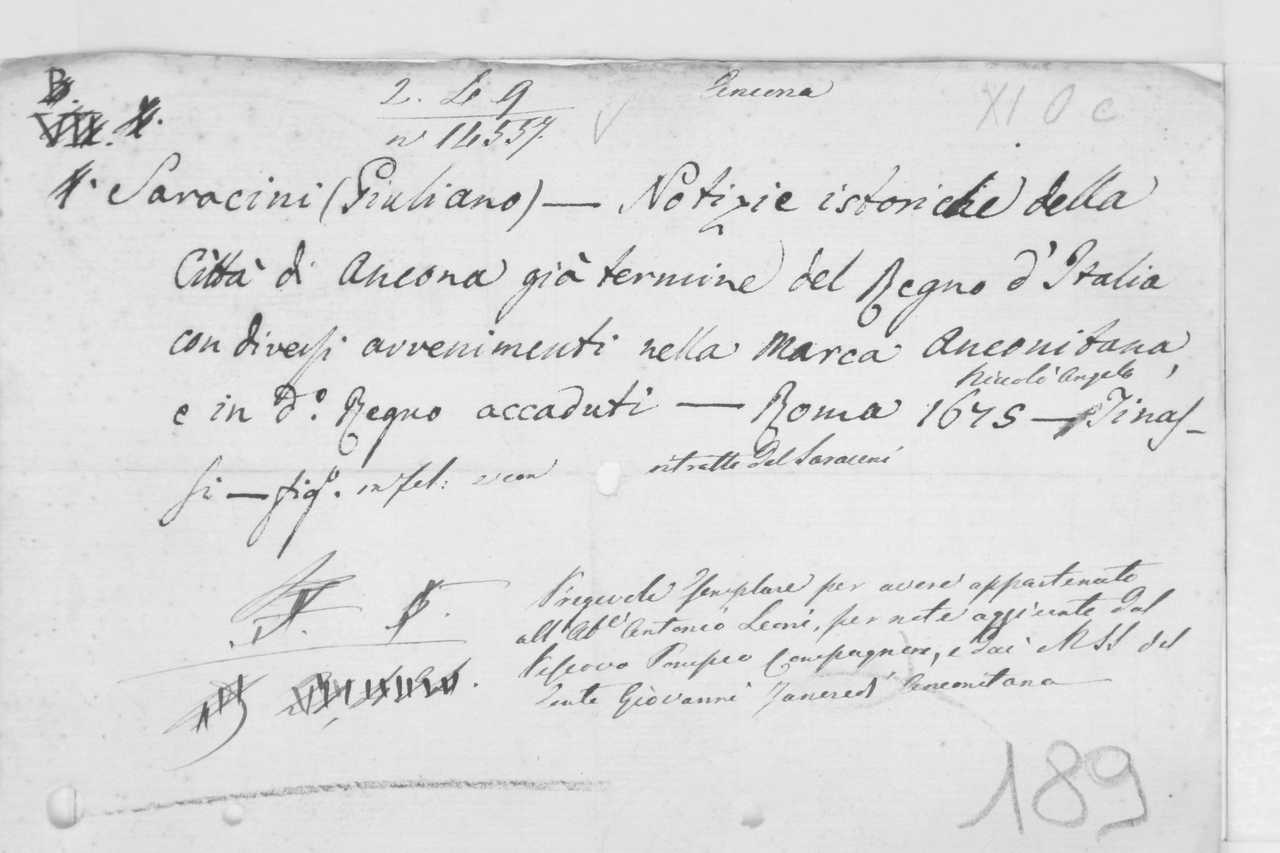 B.
2. L. 9 Ancona XI O c
n° 14557
Saracini (Giuliano) — Notizie istoriche della
Città di Ancona già termine del Regno d'Italia
con diversi avvenimenti nella Marca Anconitana,
e in d.° Regno accaduti — Roma 1675 — Niccolò Angelo Tinas-
si — fig°. in fol: con ritratto del Saracini
Pregevole esemplare per avere appartenuto
all'Ab.e Antonio Leoni, per note aggiunte dal
Vescovo Pompeo Compagnoni, e dai MSS del
Conte Giovanni Tancredi Anconitana
189